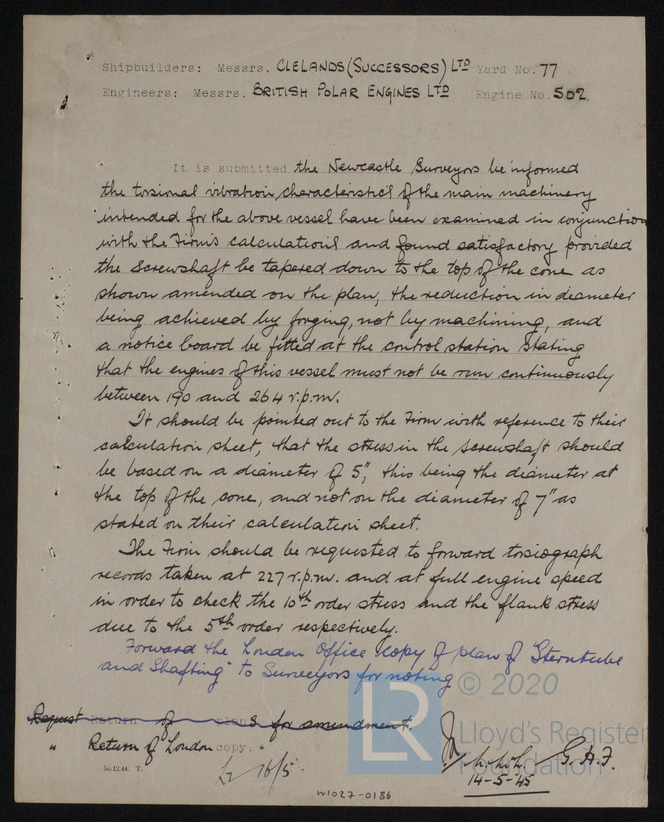 Shipbuilders: Messrs. CLELANDS (SUCCESSORS) LTD Yard No. 77
Engineers: Messrs. BRITISH POLAR ENGINES LTD Engine No. 502.
It is submitted the Newcastle Surveyors be informed
the torsional vibration characteristics of the main machinery
intended for the above vessel have been examined in conjunction
with the Firm's calculations and found satisfactory provided
the screwshaft be tapered down to the top of the cone as
shown amended on the plan, the reduction in diameter
being achieved by forging, not by machining, and
a notice board be fitted at the control station stating
that the engines of this vessel must not be run continuously
between 190 and 264 r.p.m.
It should be pointed out to the Firm with reference to their
calculation sheet, that the stress in the screwshaft should
be based on a diameter of 5", this being the diameter at
the top of the cone, and not on the diameter of 7" as
stated on their calculation sheet.
The Firm should be requested to forward torsiograph
records taken at 227 r.p.m. and at full engine speed
in order to check the 10th order stress and the flank stress
due to the 5th order respectively.
Forward the London Office copy of plan of Sterntube
and Shafting" to Surveyors for noting
© 2020
Request Return of plans for amendment.
" Return of London copy.
Lloyd's Register
Foundation
LR
G.H.F.
5m.12.44. T.
16/5
14-5-45
W1027-0186